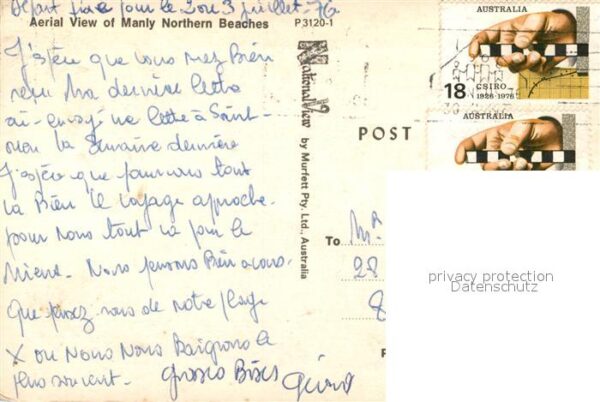 Départ fixé pour le 2 ou 3 juillet 76
Aerial View of Manly Northern Beaches P3120-1
J'espère que vous avez Bien
reçu Ma dernière lettre
ai envoyé une lettre à Saint-
la Semaine dernière
J'espère que pour vous tout
va Bien le voyage approche
pour Nous tout va pour le
Mieux. Nous pensons Bien à vous.
Que pensez vous de notre plage
X ou Nous Nous Baignons le
plus souvent. Grosses Bises
National View
by Murfett Pty. Ltd., Australia
POST
To Mr
28
8
AUSTRALIA
18 CSIRO
1926-1976
AUSTRALIA
privacy protection
Datenschutz